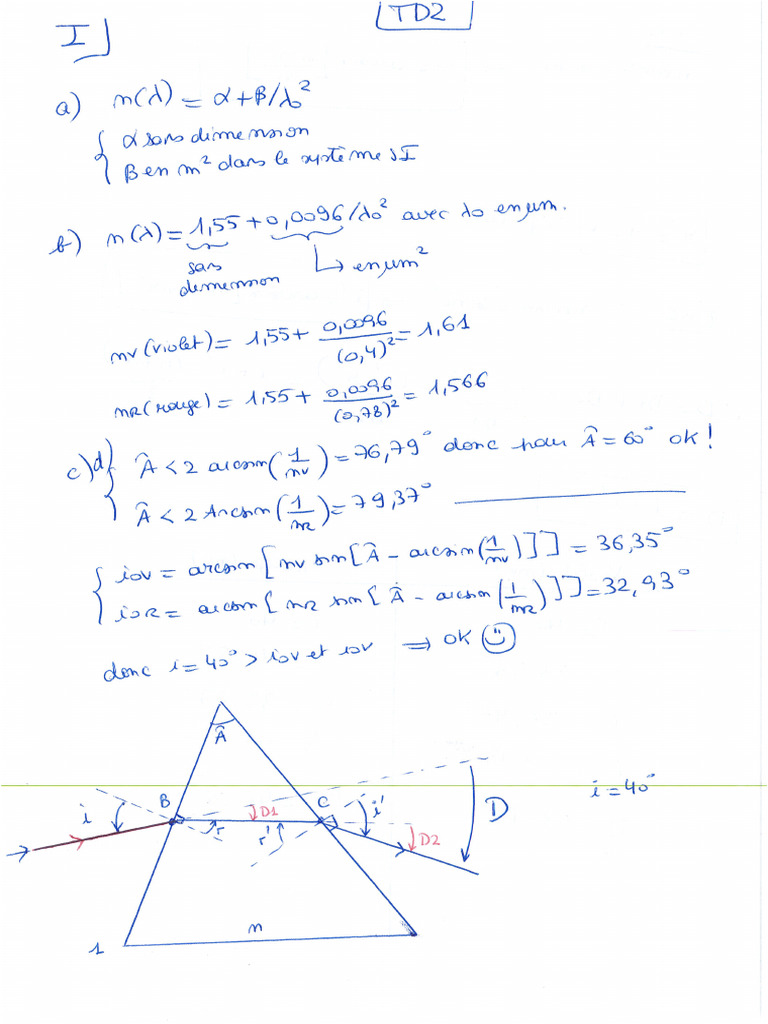 TD2
I]
a) n(λ) = α + β/λ₀²
{ α sans dimension
β en m² dans le système SI
b) n(λ) = 1,55 + 0,0096/λ₀² avec λ₀ en μm.
sans dimension
↳ en μm²
nv (violet) = 1,55 + 0,0096/(0,4)² = 1,61
nR (rouge) = 1,55 + 0,0096/(0,78)² = 1,566
c) d) { Â < 2 arcsin(1/nv) = 76,79° donc pour Â = 60° ok !
Â < 2 Arcsin(1/nR) = 79,37° ————
{ iov = arcsin[nv sin[Â - arcsin(1/nv)]] = 36,35°
ioR = arcsin[nR sin[Â - arcsin(1/nR)]] = 32,93°
donc i = 40° > iov et iov ⇒ ok ☺
Â
i = 40°
B
C
i
D1
i'
r
r'
D
D2
n
1